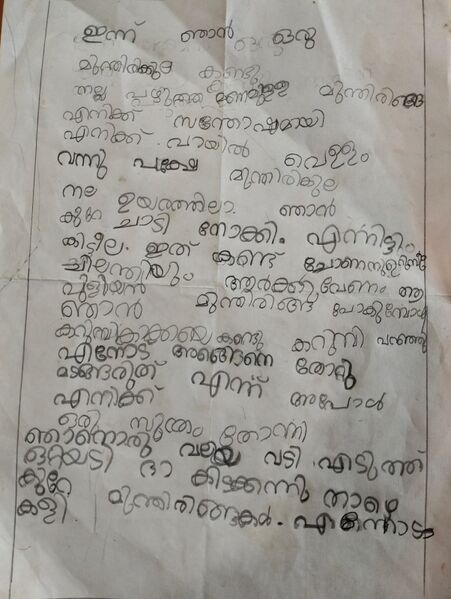 ഇന്ന് ഞാൻ ഒരു
മുന്തിരിക്കുല കണ്ടു
നല്ല പഴുത്ത മണമുള്ള മുന്തിരിങ്ങ
എനിക്ക് സന്തോഷമായി
എനിക്ക് വായിൽ വെള്ളം
വന്നു പക്ഷേ മുന്തിരികുല
നല ഉയരത്തിലാ. ഞാൻ
കുറേ ചാടി നോക്കി. എന്നിട്ടും
കിട്ടീല. ഇത് കണ്ട് ചോണനുറുമ്പും
ചിലന്തിയും ആർക്കു വേണം ആ
പുളിയൻ മുന്തിരിങ്ങ പോകുമ്പോൾ
ഞാൻ
കുറുമ്പികാക്കയെ കണ്ടു കുറുമ്പി പറഞ്ഞു
എന്നോട് അങ്ങനെ തോറ്റു
മടങ്ങരുത് എന്ന് അപോൾ
എനിക്ക്
ഒരു സൂത്രം തോന്നി
ഞാനൊരു വലയ വടി എടുത്ത്
ഒറ്റയടി ദാ കിടക്കുന്നു താഴെ
കുറേ മുന്തിരിങ്ങകൾ. എന്നോടാ
കളി